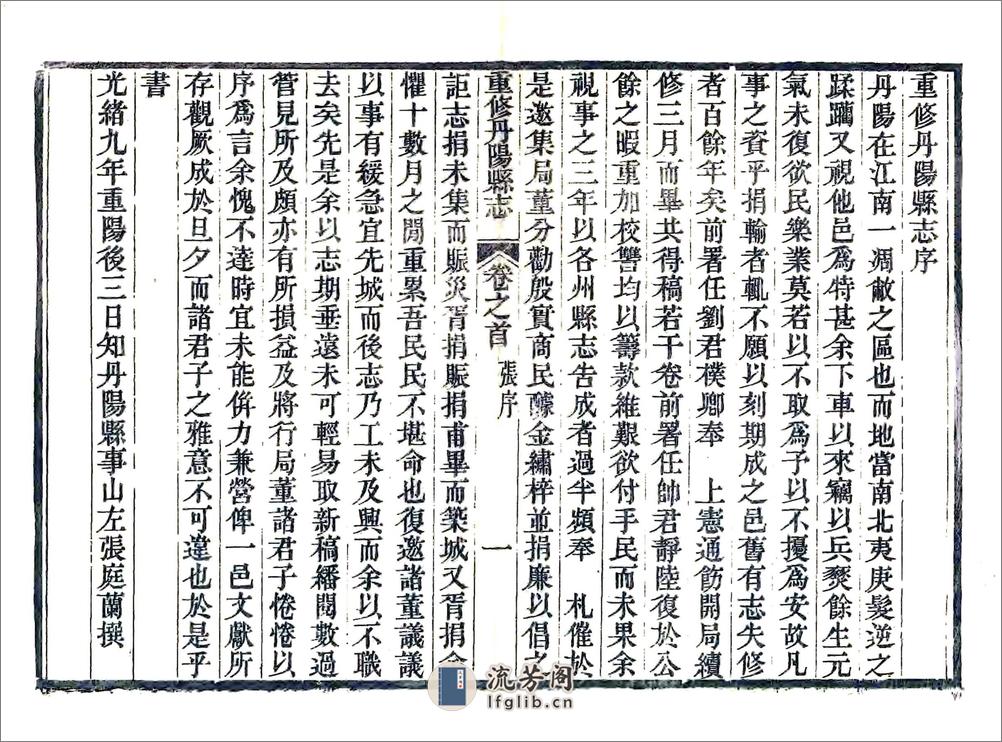 重修丹陽縣志序
丹陽在江南一凋敝之區也而地當南北夷庚髮逆之
蹂躪又視他邑為特甚余下車以來竊以兵燹餘生元
氣未復欲民樂業莫若以不取為予以不擾為安故凡
事之資乎捐輸者輒不願以刻期成之邑舊有志失修
者百餘年矣前署任劉君樸卿奉　上憲通飭開局續
修三月而畢共得稿若干卷前署任帥君靜陸復於公
餘之暇重加校讐均以籌款維艱欲付手民而未果余
視事之三年以各州縣志告成者過半頻奉　札催於
是邀集局董分勸殷實商民醵金繡梓並捐廉以倡之
重修丹陽縣志　卷之首　張序　一
詎志捐未集而賑災胥捐賑捐甫畢而築城又胥捐余
懼十數月之閒重累吾民民不堪命也復邀諸董議議
以事有緩急宜先城而後志乃工未及興而余以不職
去矣先是余以志期垂遠未可輕易取新稿繙閱數過
管見所及頗亦有所損益及將行局董諸君子惓惓以
序為言余愧不達時宜未能併力兼營俾一邑文獻所
存觀厥成於旦夕而諸君子之雅意不可違也於是乎
書
光緒九年重陽後三日知丹陽縣事山左張庭蘭撰
流芳閣
lfglib.cn